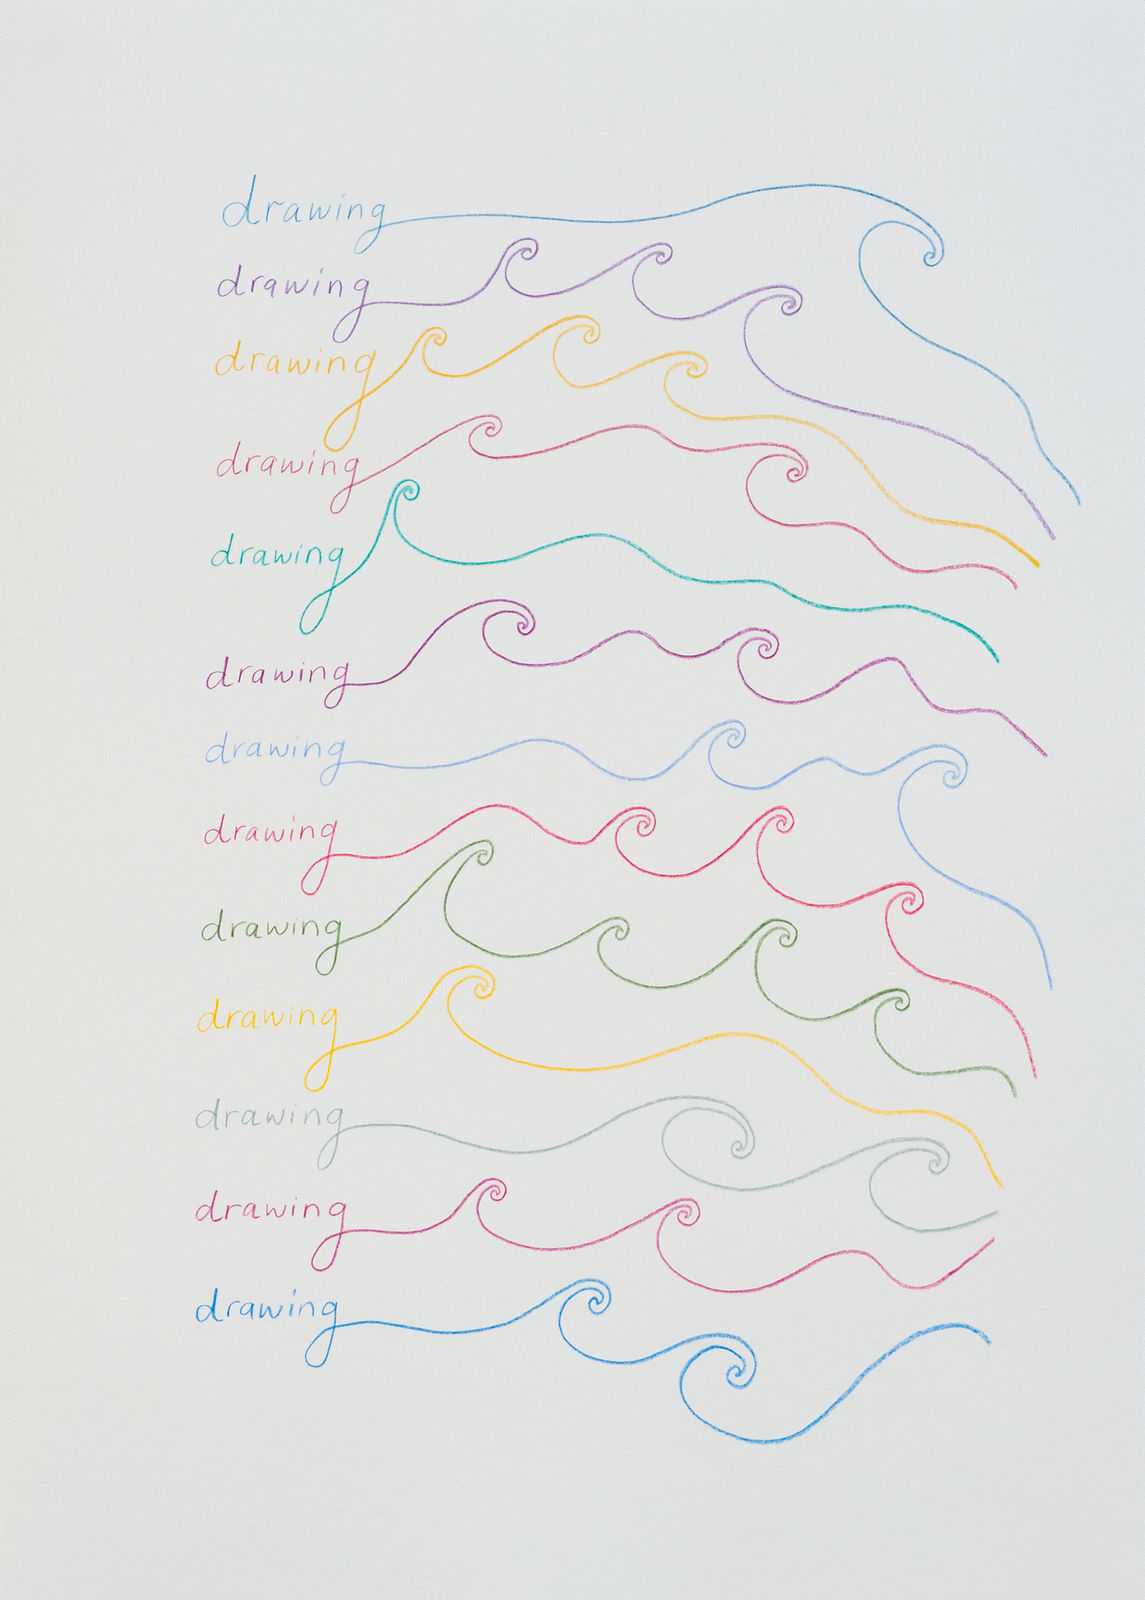 drawing
drawing
drawing
drawing
drawing
drawing
drawing
drawing
drawing
drawing
drawing
drawing
drawing